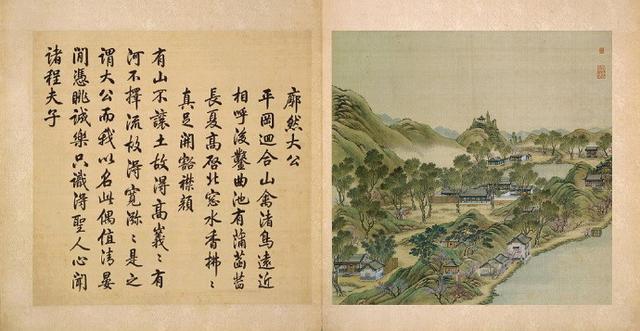 廓然大公
平岡迴合山禽渚鳥遠近
相呼後鑿曲池有蒲菡萏
長夏高啓北窓水香拂〻
真足開豁襟顏
有山不讓土故得高〻有
河不擇流故得寬瀰〻是之
謂大公而我以名此偶值清晏
閒憑眺誠樂只識得聖人心聞
諸程夫子